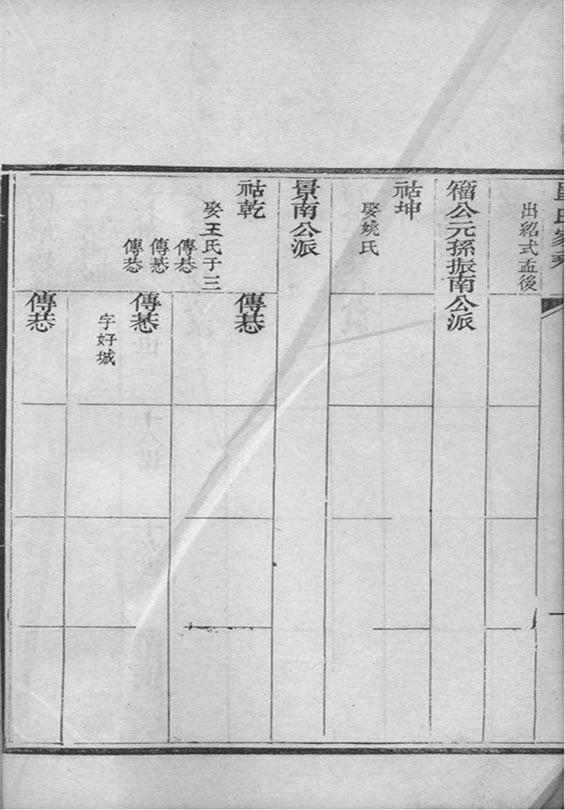 氏家
出紹式孟後
公元孫振南公派
祜坤
娶姚氏
景南公派
祜乾
娶王氏子三
傳
傳
傳
傳
傳
字好城
傳